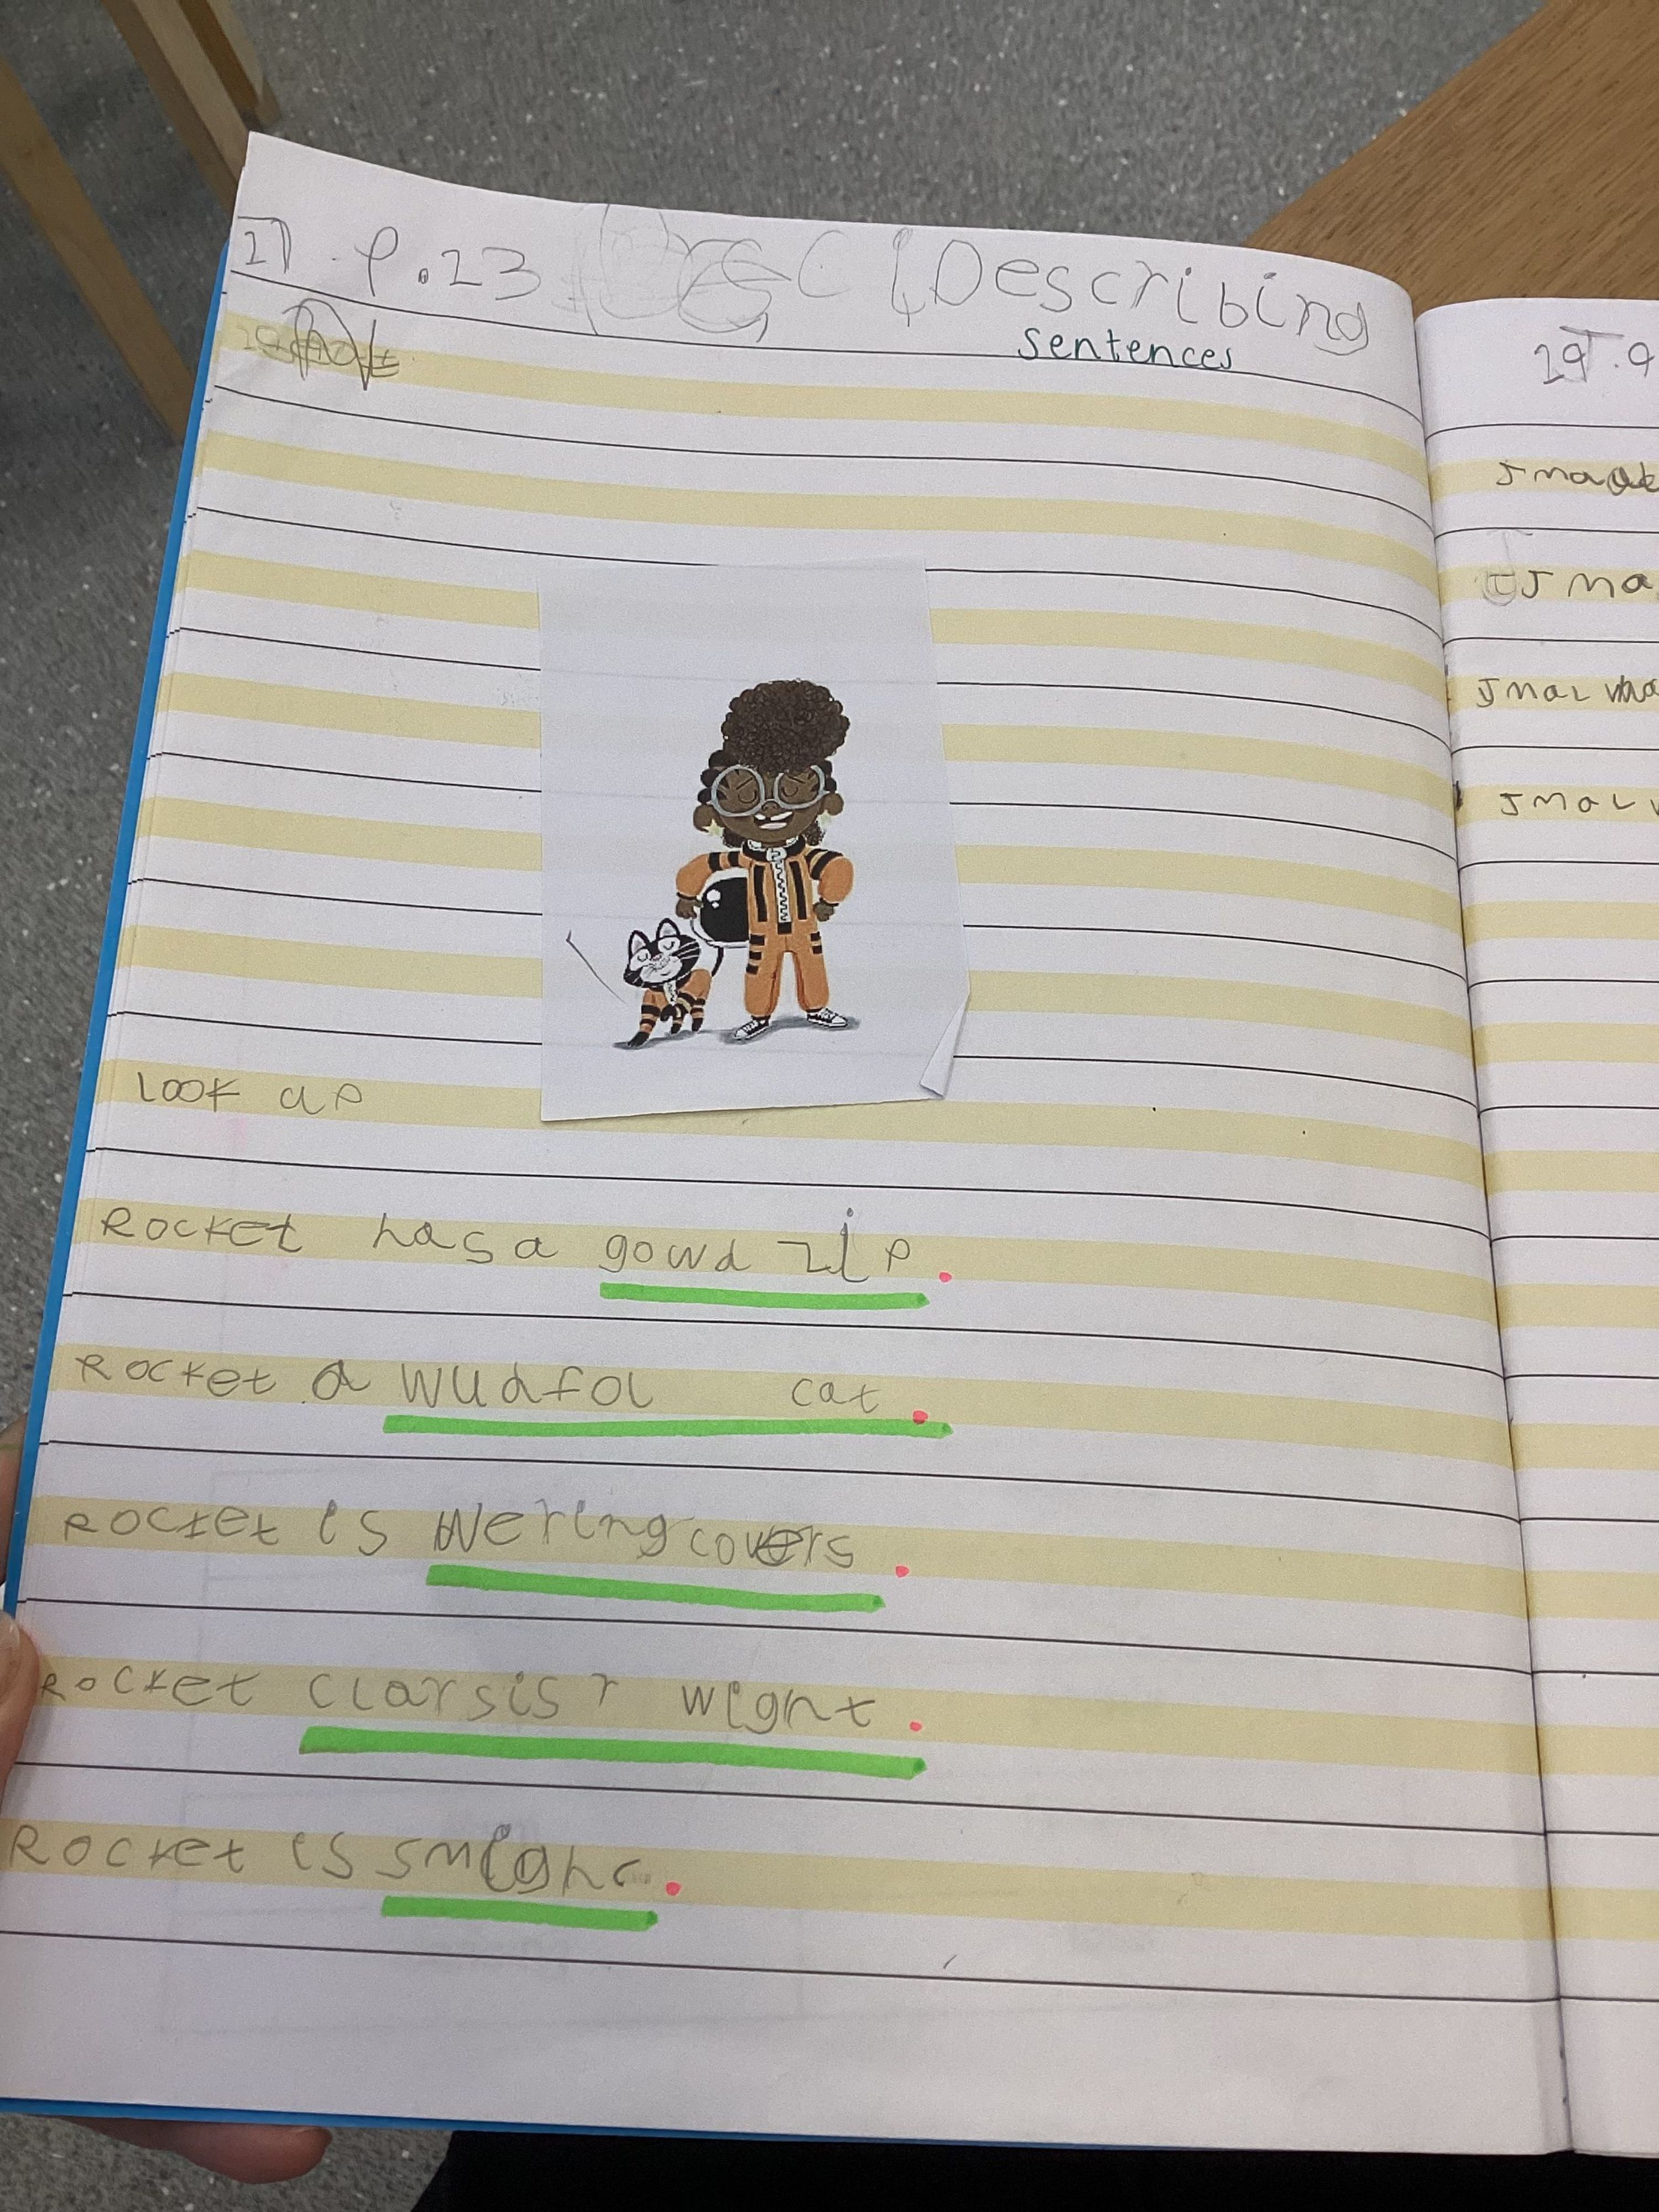 27 . 9 .23 Describing
sentences
Look up
Rocket has a gowd zip.
Rocket a wudfol cat.
Rocket is wering covers.
Rocket clarsisr wight.
Rocket is
29 . 9